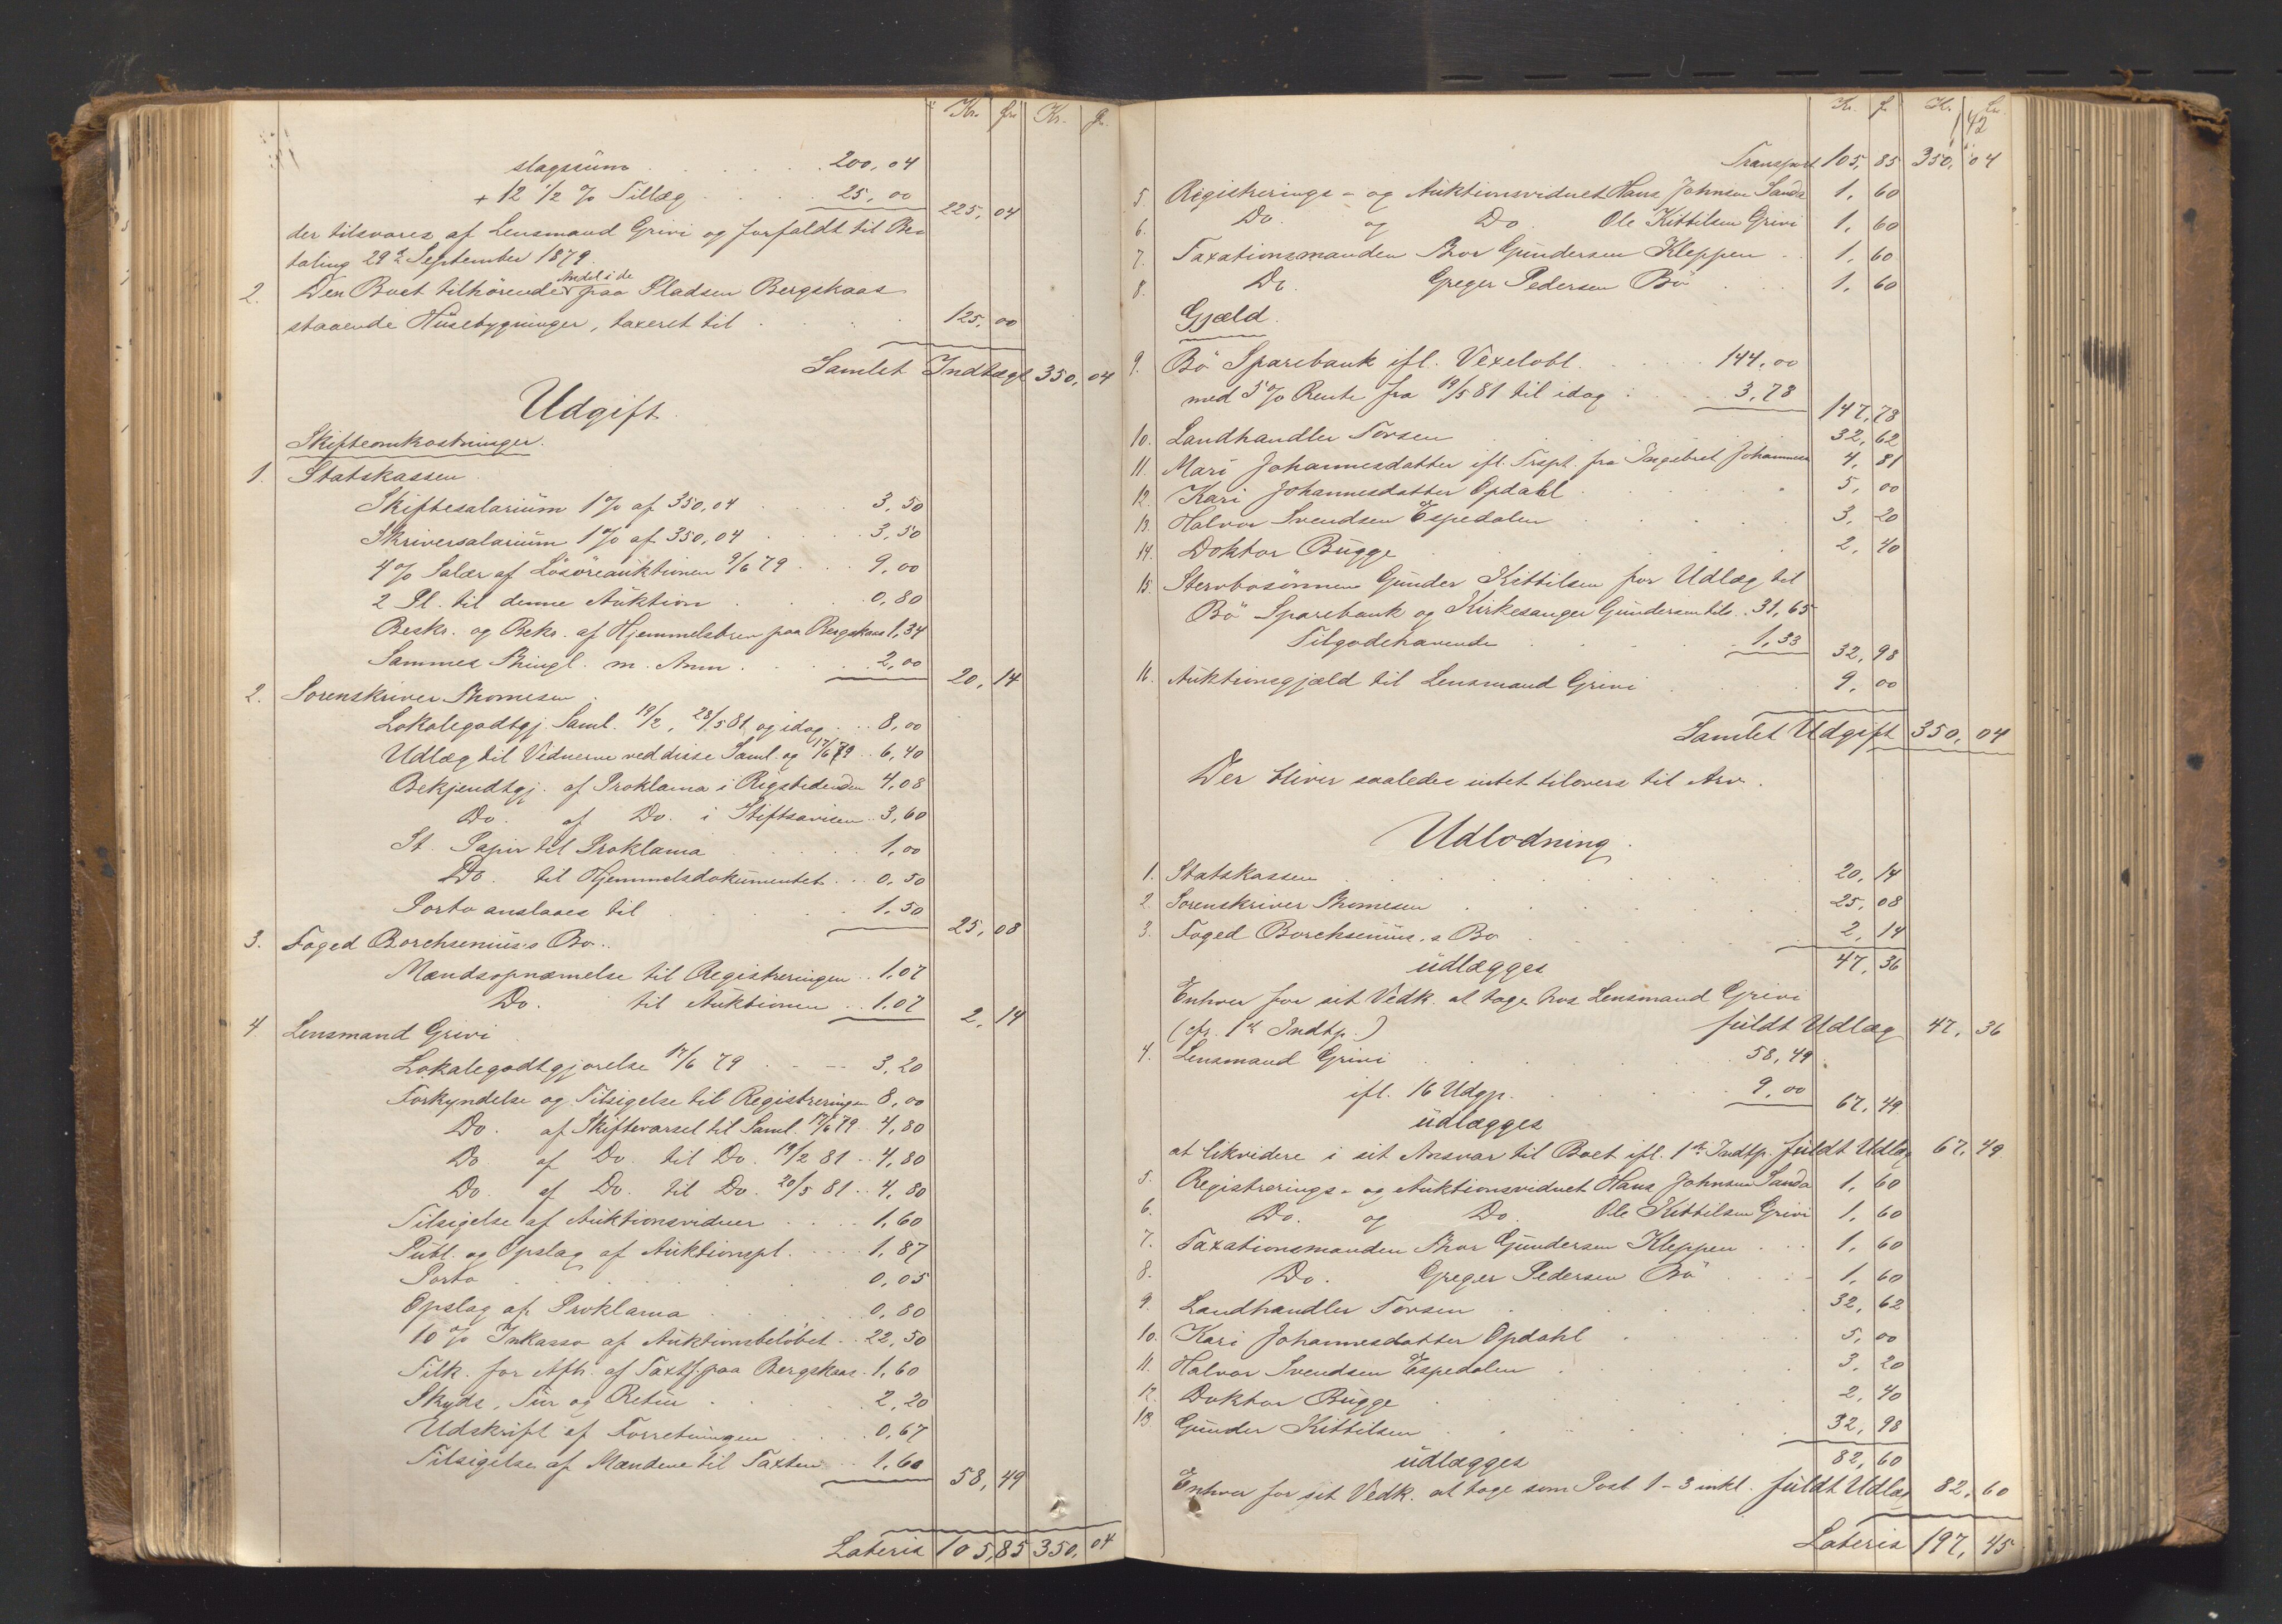 Kr. Ør. Kr. Ør.
slagssum 200,04
+ 12 1/2 % Tillæg 25,00 225,04
der tilsvares af Lensmand Grivi og forfaldt til Be-
taling 29de September 1879.
2. Den Boet tilhørende Andel i de paa Pladsen Bergskaas
staaende Husebygninger, taxeret til 125,00
Samlet Indtægt 350,04
Udgift.
Skifteomkostninger.
1. Statskassen
Skiftesalarium 1 % af 350,04 3,50
Skriversalarium 1 % af 350,04 3,50
4 % Salær af Løsøreauktionen 9/6 79 9,00
2 Pl. til denne Auktion 0,80
Beskr. og Bekr. af Hjemmelsbrev paa Bergskaas 1,34
Sammes Thingl. m. Anm. 2,00 20,14
2. Sorenskriver Thomesen
Lokalegodtgj. Saml. 19/2, 28/5 81 og idag 8,00
Udlæg til Vidnerne ved disse Saml. og 17/6 79 6,40
Bekjendtgj. af Proklama i Rigstidenden 4,08
Do. af Do. i Stiftsavisen 3,60
St. Papir til Proklama 1,00
Do. til Hjemmelsdokumentet 0,50
Porto anslaaes til 1,50 25,08
3. Foged Borchsenius's Bo.
Mændsopnæmelse til Registreringen 1,07
Do. til Auktionen 1,07 2,14
4. Lensmand Grivi
Lokalegodtgjørelse 17/6 79 3,20
Forkyndelse og Tilsigelse til Registreringen 8,00
Do. af Skiftevarsel til Saml. 17/6 79 4,80
Do af Do. til Do. 19/2 81 4,80
Do. af Do. til Do. 20/5 81 4,80
Tilsigelse af Auktionsvidner 1,60
Publ. og Opslag af Auktionspl. 1,87
Porto 0,05
Opslag af Proklama 0,80
10 % Inkasso af Auktionsbeløbet 22,50
Tilk. for Afh. af Taxtf. paa Bergskaas 1,60
Skyds, Tur og Retur 2,20
Udskrift af Forretningen 0,67
Tilsigelse af Mændene til Taxten 1,60 58,49
Lateris 105,85 350,04
Kr. Ør. Kr.
142
Transport 105,85 350,04
5. Registrerings- og Auktionsvidnet Hans Johnsen Sanda 1,60
6. Do. og Do. Ole Kittilsen Grivi 1,60
7. Taxationsmanden Thor Gundersen Kleppen 1,60
8. Do. Greger Pedersen Bø 1,60
Gjæld.
9. Bø Sparebank ifl. Vexelobl. 144,00
med 5 % Rente fra 19/5 81 til idag 3,78 147,78
10. Landhandler Torsen 32,62
11. Mari Johannesdatter ifl. Trspt. fra Ingebret Johannesen 4,81
12. Kari Johannesdatter Opdahl 5,00
13. Halvor Svendsen Espedalen 3,20
14. Doktor Bugge 2,40
15. Stervbosønnen Gunder Kittilsen for Udlæg til
Bø Sparebank og Kirkesanger Gundersen tils. 31,65
Tilgodehavende 1,33 32,98
16. Auktionsgjæld til Lensmand Grivi 9,00
Samlet Udgift 350,04
Der bliver saaledes intet tilovers til Arv.
Udlodning.
1. Statskassen 20,14
2. Sorenskriver Thomesen 25,08
3. Foged Borchsenius's Bo 2,14
udlægges 47,36
Enhver for sit Vedk. at tage hos Lensmand Grivi
(cfr. 1ste Indtp.) fuldt Udlæg 47,36
4. Lensmand Grivi 58,49
ifl. 16 Udgp. 9,00 67,49
udlægges
at likvidere i sit Ansvar til Boet ifl. 1ste Indtp. fuldt Udlæg 67,49
5. Registrerings- og Auktionsvidnet Hans Johnsen Sanda 1,60
6. Do. og Do. Ole Kittilsen Grivi 1,60
7. Taxationsmanden Thor Gundersen Kleppen 1,60
8. Do. Greger Pedersen Bø 1,60
9. Landhandler Torsen 32,62
10. Kari Johannesdatter Opdahl 5,00
11. Halvor Svendsen Espedalen 3,20
12. Doktor Bugge 2,40
13. Gunder Kittilsen 32,98
udlægges 82,60
Enhver for sit Vedk. at tage som Post 1-3 inkl. fuldt Udlæg 82,60
Lateris 197,45